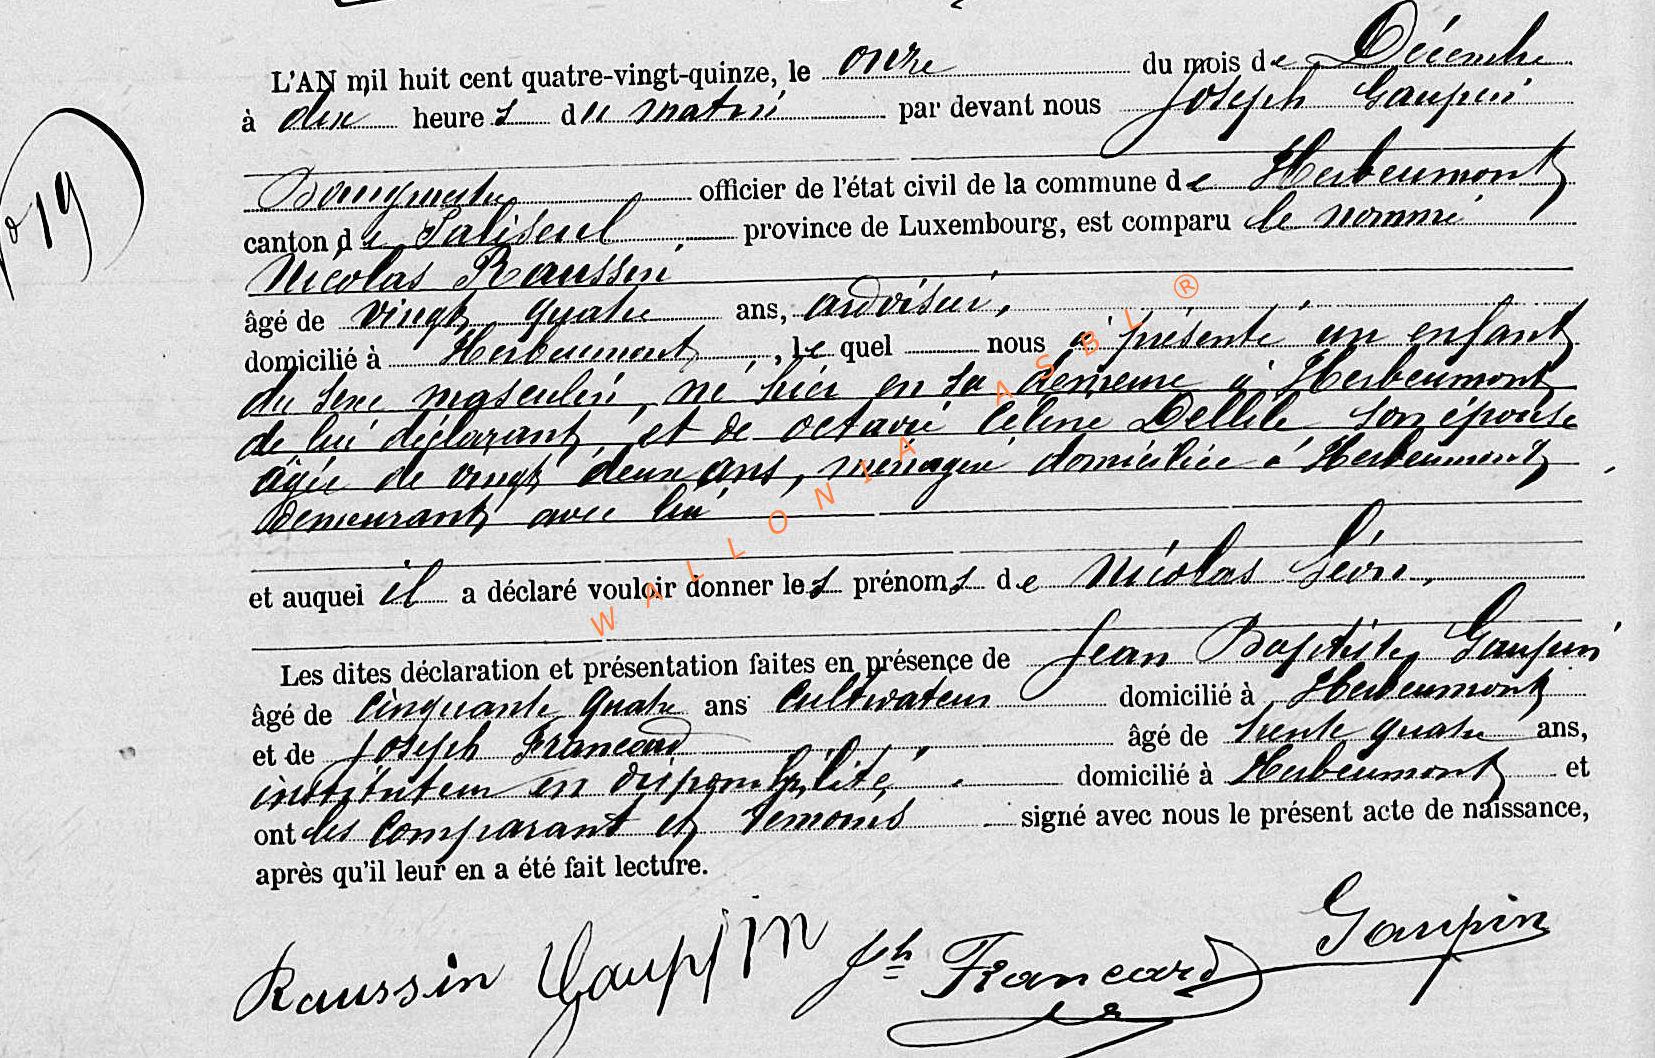 L'AN mil huit cent quatre-vingt-quinze, le onze du mois de Décembre
à dix heures du matin par devant nous Joseph Gaupin
Nº 19
Bourgmestre officier de l'état civil de la commune de Herbeumont
canton de Paliseul province de Luxembourg, est comparu le nommé
Nicolas Raussin
âgé de vingt quatre ans, ardoisier,
domicilié à Herbeumont, lequel nous a présenté un enfant
du sexe masculin, né hier en sa demeure à Herbeumont
de lui déclarant, et de Octavie Céline Dellile son épouse
âgée de vingt deux ans, ménagère domiciliée à Herbeumont,
demeurant avec lui
et auquel il a déclaré vouloir donner les prénoms de Nicolas Léon.
Les dites déclaration et présentation faites en présence de Jean Baptiste Gaupin
âgé de cinquante quatre ans cultivateur domicilié à Herbeumont
et de Joseph Francard âgé de trente quatre ans,
instituteur en disponibilité, domicilié à Herbeumont et
ont les comparant et témoins signé avec nous le présent acte de naissance,
après qu'il leur en a été fait lecture.
Raussin Gaupin Jh Francard Gaupin
WALLONIA ASBL ®